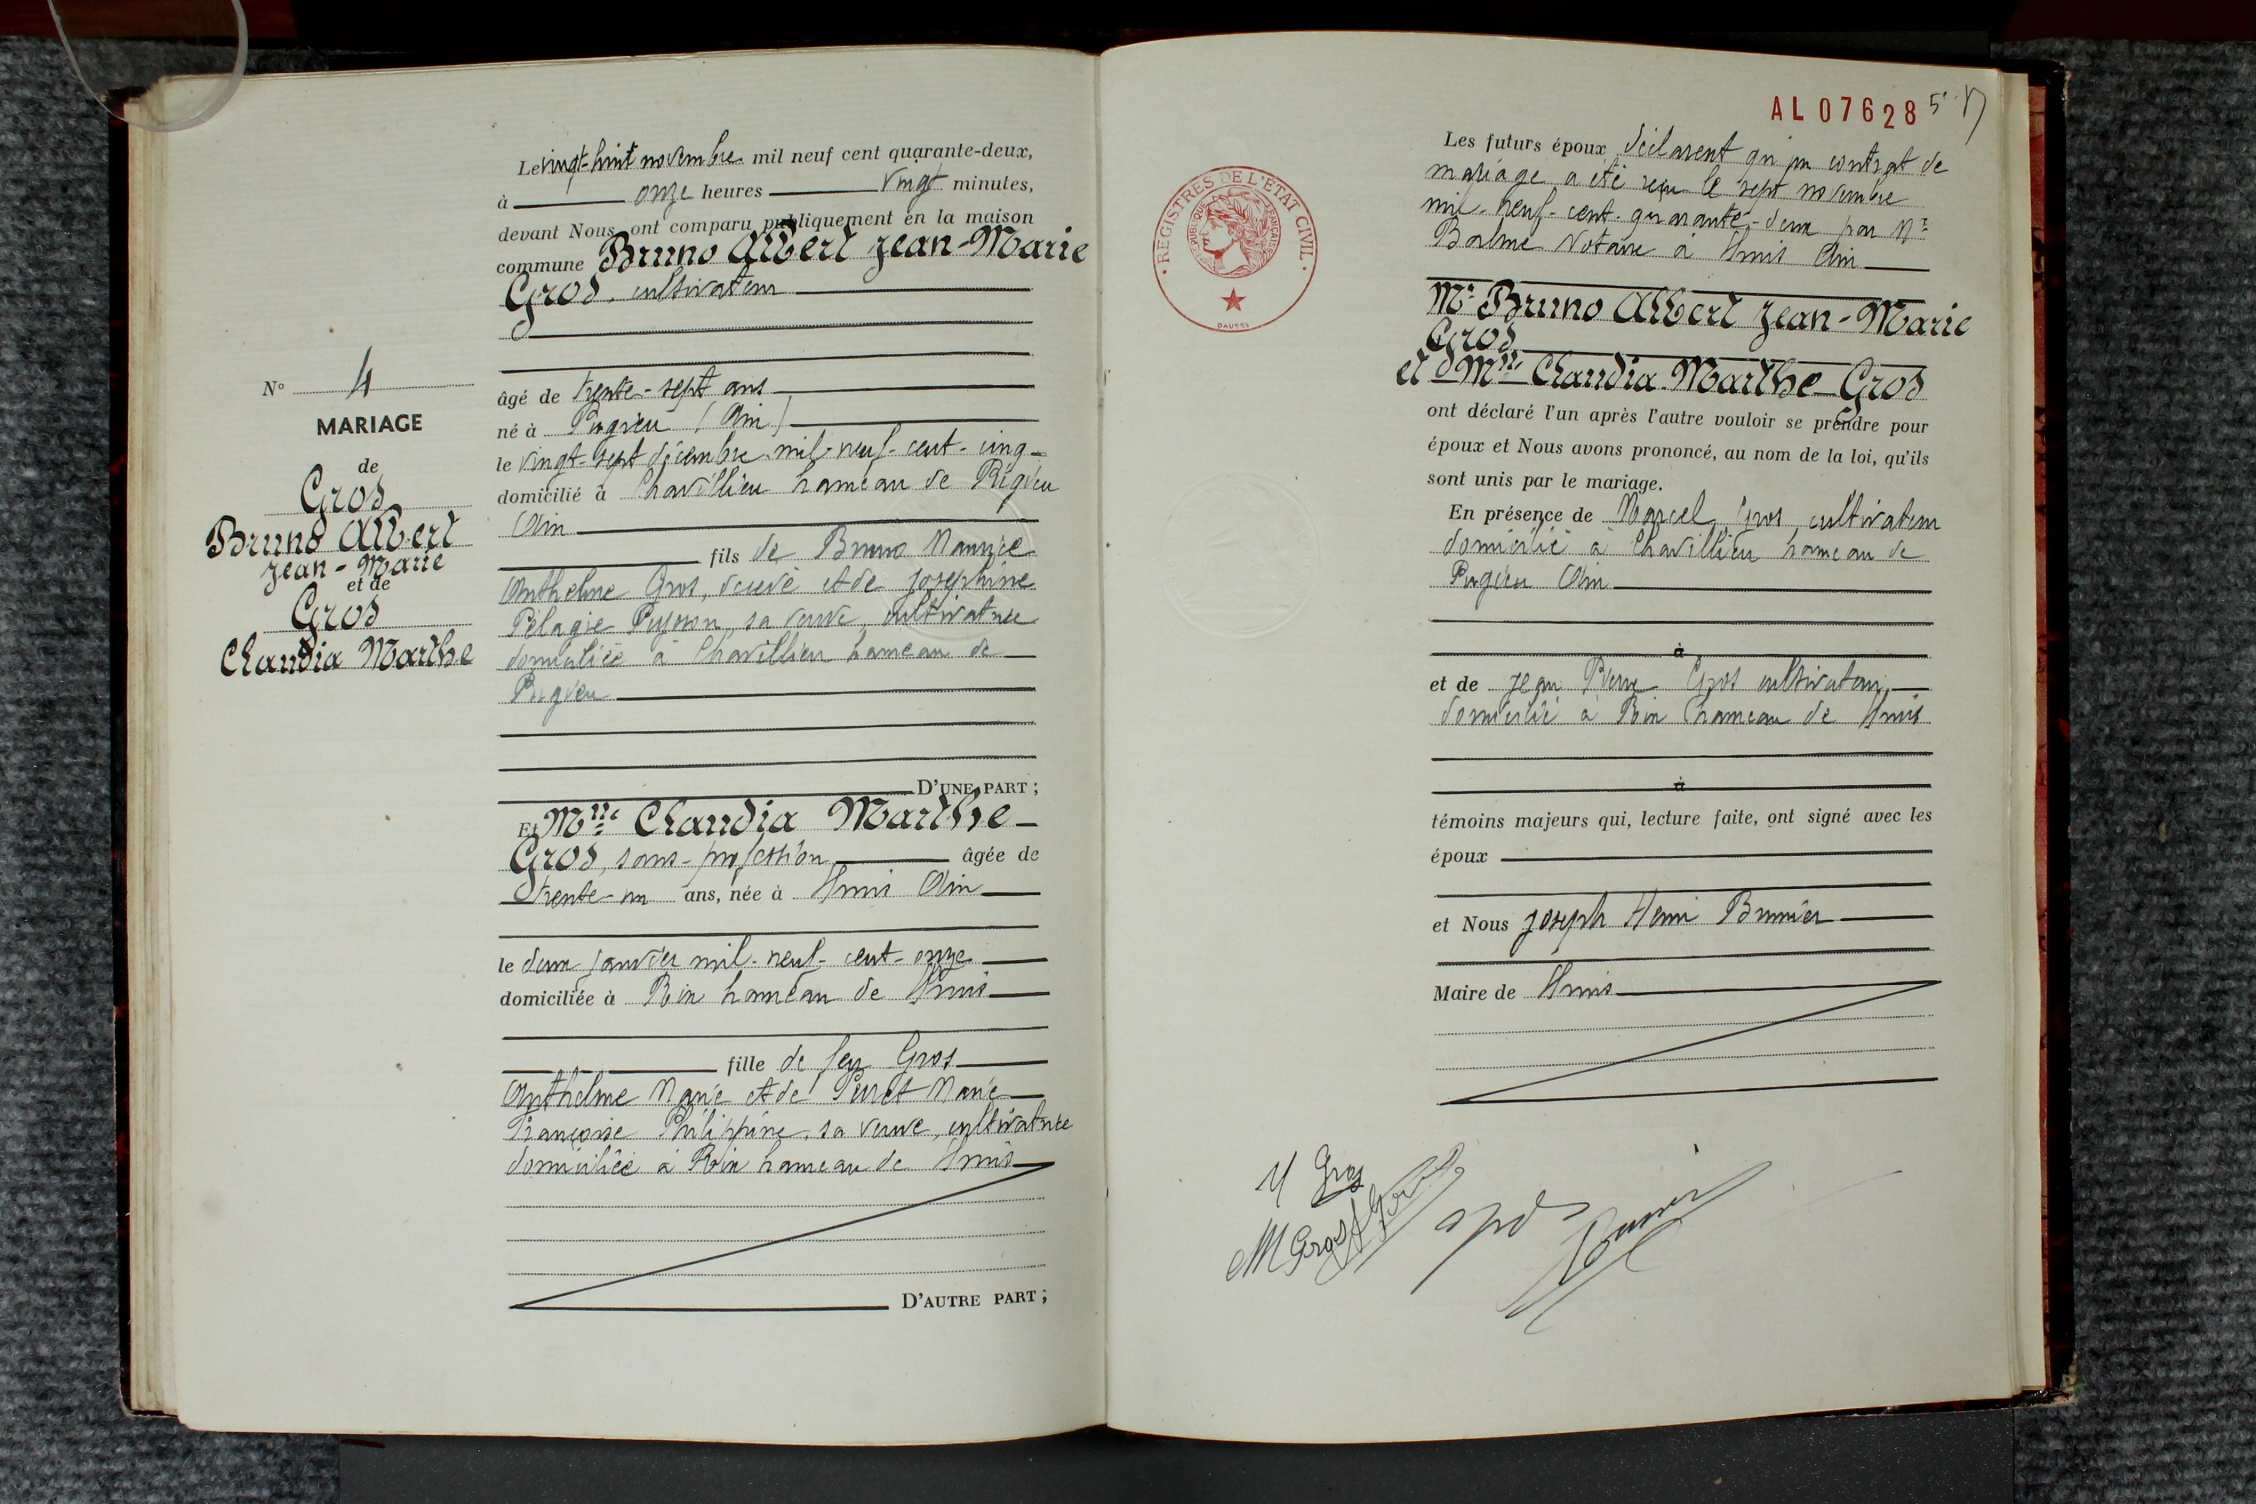 N° 4
MARIAGE
de
Gros
Bruno Albert
Jean-Marie
et de
Gros
Claudia Marthe
Le vingt-huit novembre mil neuf cent quarante-deux,
à onze heures vingt minutes,
devant Nous ont comparu publiquement en la maison
commune Bruno Albert Jean-Marie
Gros, cultivateur
âgé de trente-sept ans
né à Pugieu (Ain)
le vingt-sept décembre mil-neuf-cent-cinq
domicilié à Chavillieu hameau de Pugieu
Ain
fils de Bruno Maurice
Anthelme Gros, décédé et de Joséphine
Pélagie, sa veuve, cultivatrice
domiciliée à Chavillieu hameau de
Pugieu
D'UNE PART;
Et Mlle Claudia Marthe
Gros, sans-profession âgée de
trente-un ans, née à Ain
le deux janvier mil-neuf-cent-onze
domiciliée à hameau de
fille de feu Gros
Anthelme Marie et de Perret Marie
Françoise Philippine, sa veuve, cultivatrice
domiciliée à hameau de
D'AUTRE PART;
AL 07628 5
REGISTRES DE L'ETAT CIVIL
REPUBLIQUE FRANÇAISE
DAUSSY
Les futurs époux déclarent qu'un contrat de
mariage a été reçu le sept novembre
mil-neuf-cent-quarante-deux par Me
Balme Notaire à Ain
Mr Bruno Albert Jean-Marie
Gros
et d Mlle Claudia Marthe Gros
ont déclaré l'un après l'autre vouloir se prendre pour
époux et Nous avons prononcé, au nom de la loi, qu'ils
sont unis par le mariage.
En présence de Marcel Gros cultivateur
domicilié à Chavillieu hameau de
Pugieu Ain
à
et de Jean Pierre Gros cultivateur
domicilié à hameau de
à
témoins majeurs qui, lecture faite, ont signé avec les
époux
et Nous Joseph Henri Brunier
Maire de
M Gros
M Gros